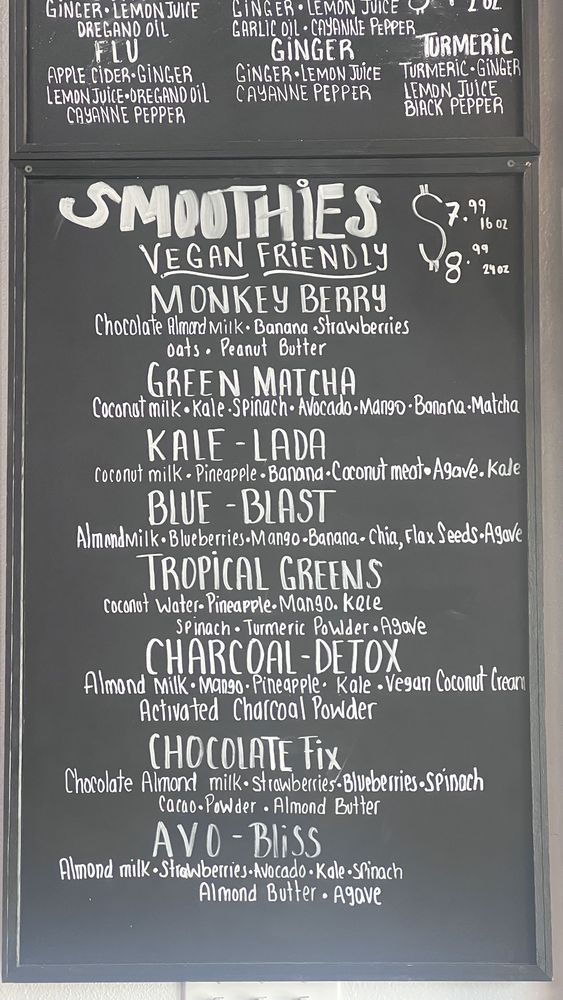 GINGER • LEMON JUICE
OREGANO OIL
GINGER • LEMON JUICE
GARLIC OIL • CAYANNE PEPPER
2 OZ
FLU
APPLE CIDER • GINGER
LEMON JUICE • OREGANO OIL
CAYANNE PEPPER
GINGER
GINGER • LEMON JUICE
CAYANNE PEPPER
TURMERIC
TURMERIC • GINGER
LEMON JUICE
BLACK PEPPER
SMOOTHiES
$7.99 16 oz
8.99 24 oz
VEGAN FRiENDLY
MONKEY BERRY
Chocolate Almond Milk • Banana • Strawberries
oats • Peanut Butter
GREEN MATCHA
Coconut milk • Kale • Spinach • Avocado • Mango • Banana • Matcha
KALE - LADA
coconut milk • Pineapple • Banana • Coconut meat • Agave • Kale
BLUE - BLAST
Almond Milk • Blueberries • Mango • Banana • Chia, Flax Seeds • Agave
TROPiCAL GREENS
coconut Water • Pineapple • Mango • Kale
Spinach • Turmeric Powder • Agave
CHARCOAL - DETOX
Almond Milk • Mango • Pineapple • Kale • Vegan Coconut Cream
Activated Charcoal Powder
CHOCOLATE Fix
Chocolate Almond milk • Strawberries • Blueberries • Spinach
Cacao • Powder • Almond Butter
AVO - Bliss
Almond milk • Strawberries • Avocado • Kale • Spinach
Almond Butter • Agave